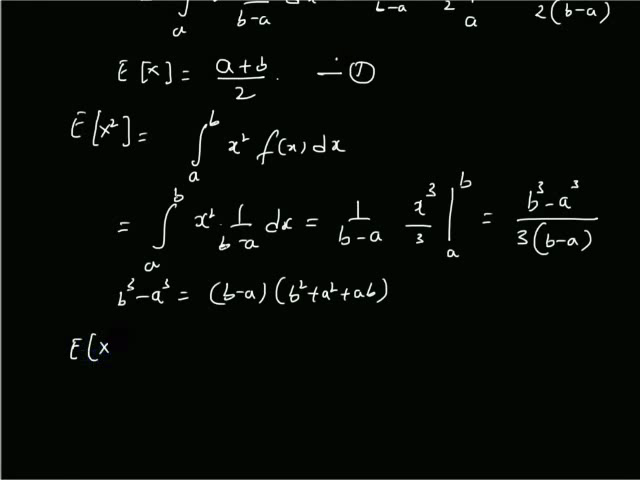 ∫ₐ b-a b-a 2 a 2(b-a)
E[x] = (a+b)/2 . — ①
E[x²] = ∫ₐᵇ x² f(x) dx
= ∫ₐᵇ x² · 1/(b-a) dx = 1/(b-a) x³/3 |ₐᵇ = (b³-a³)/(3(b-a))
b³-a³ = (b-a)(b²+a²+ab)
E[x